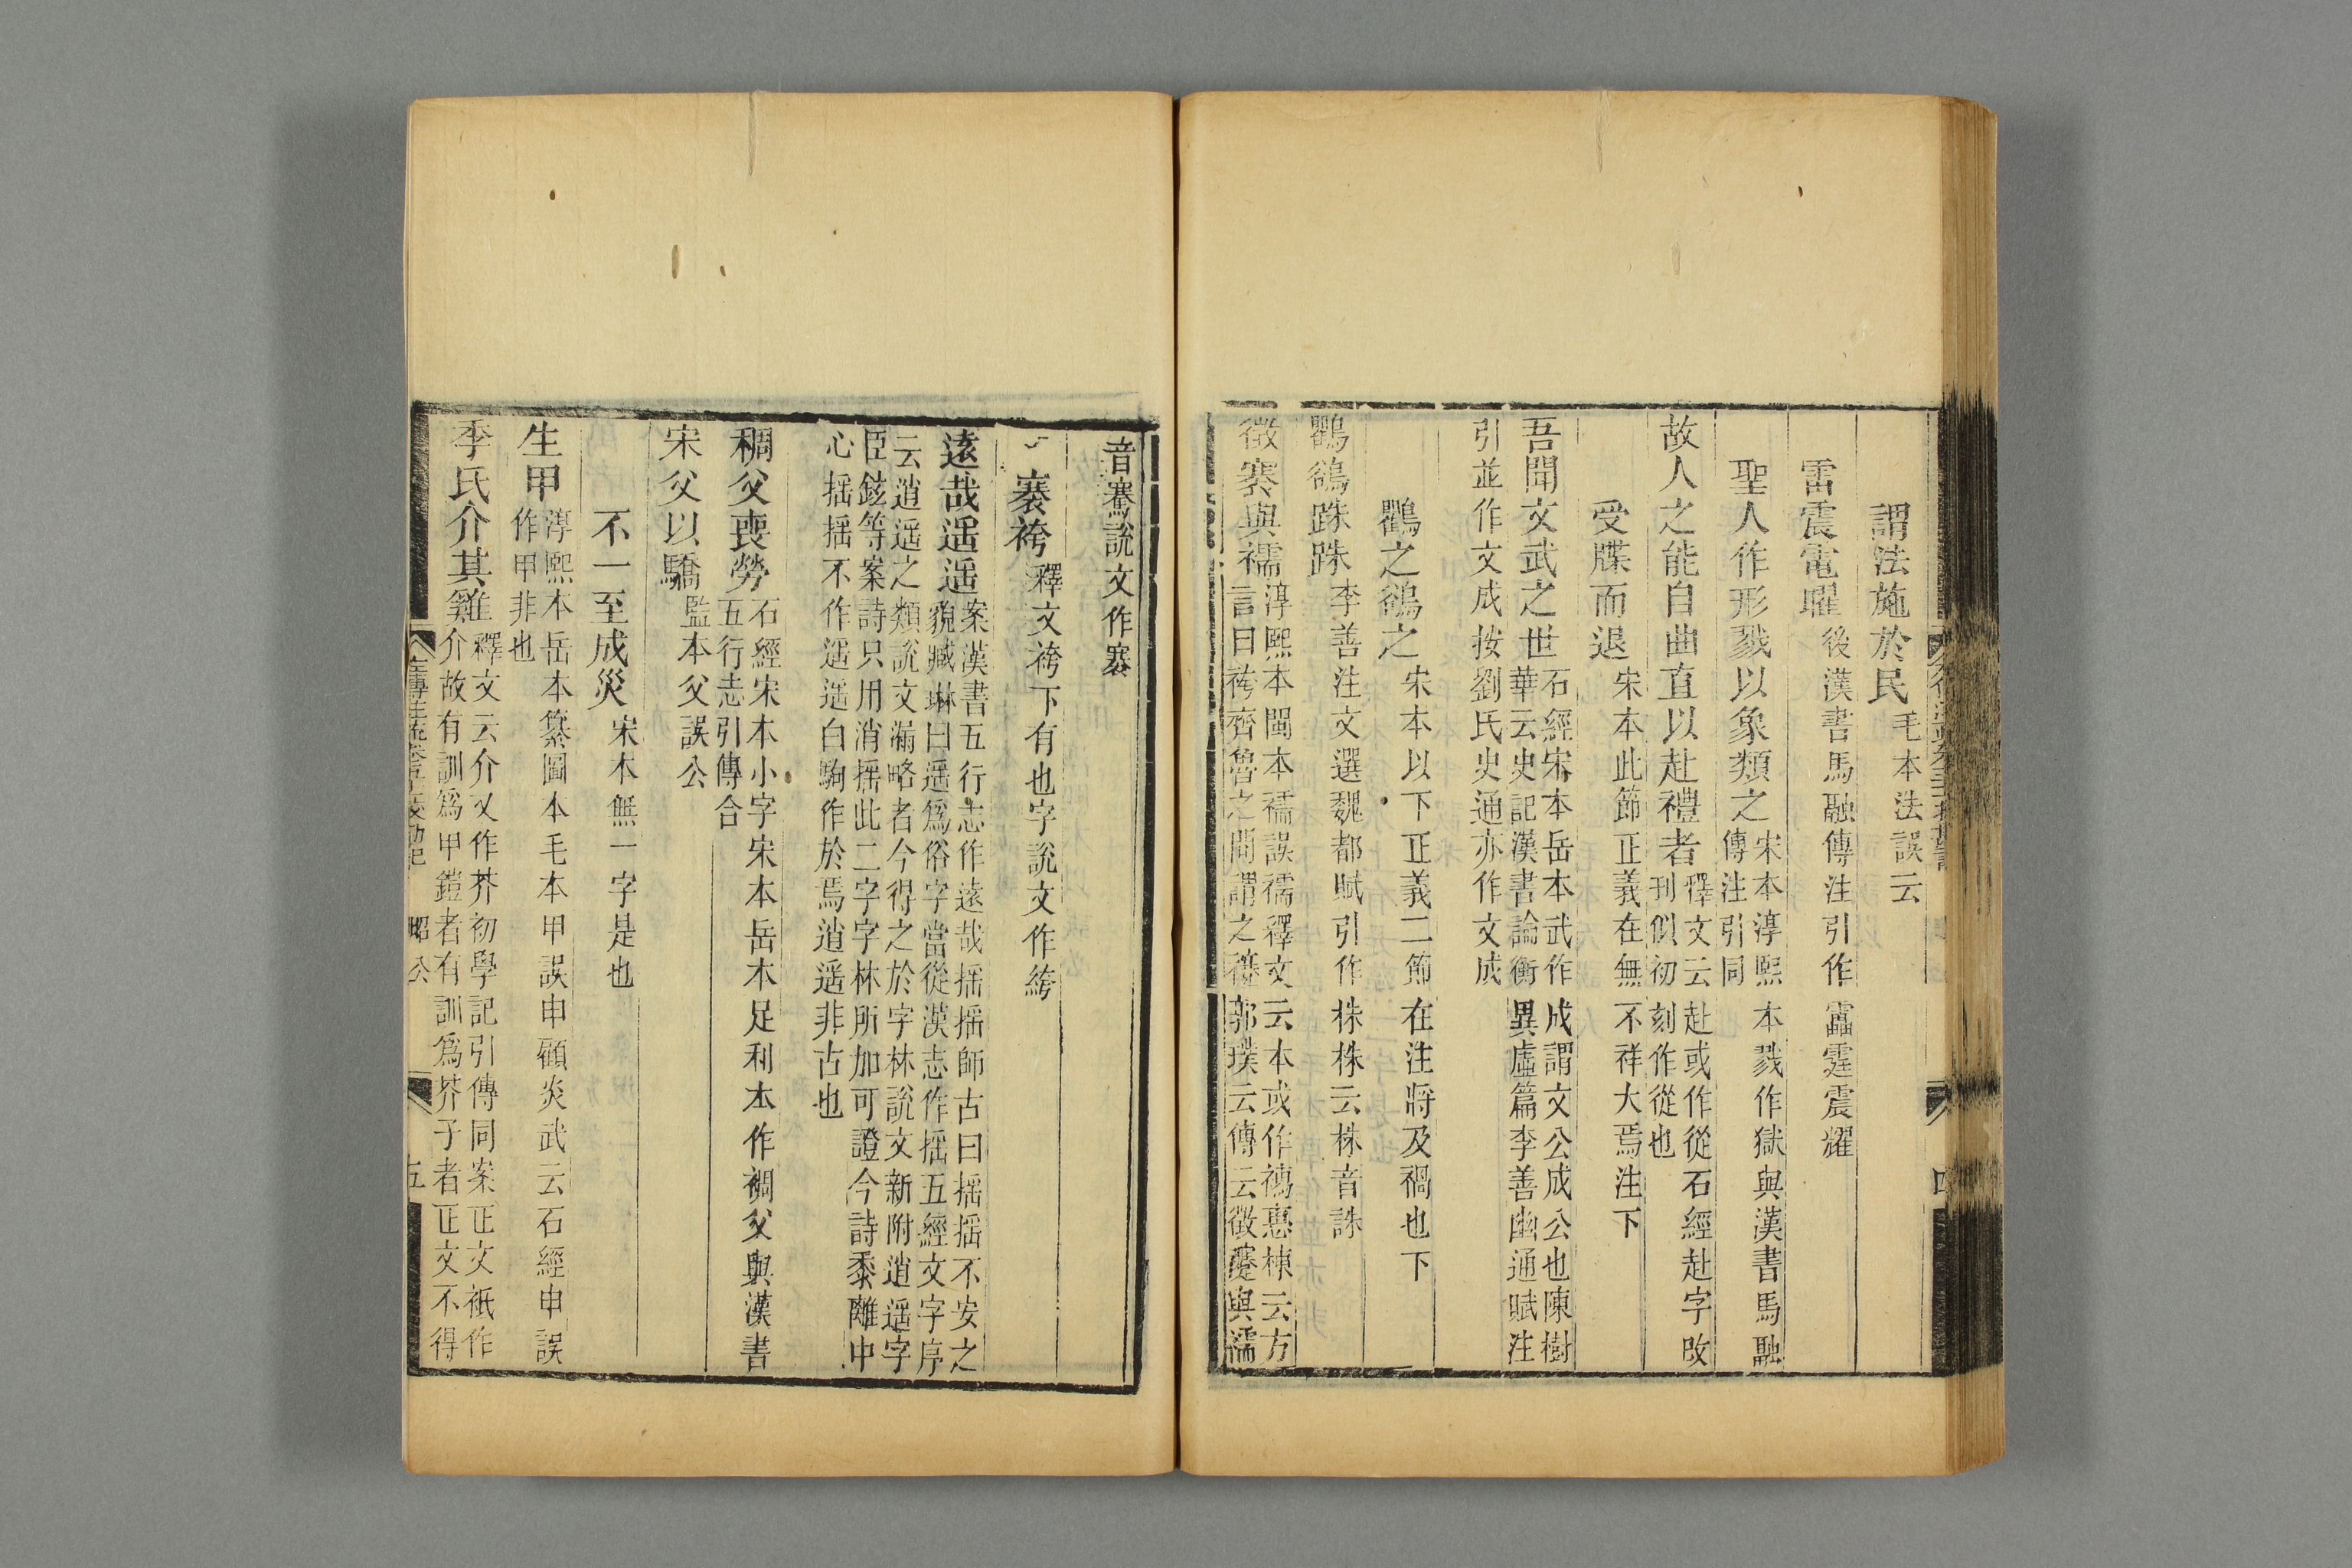 謂法施於民毛本法誤云
雷震電曜後漢書馬融傳注引作靁霆震耀
聖人作形戮以象類之宋本淳熙本戮作獄與漢書馬融
傳注引同
故人之能自曲直以赴禮者釋文云赴或作從石經赴字改
刊似初刻作從也
受牒而退宋本此節正義在無不祥大焉注下
吾聞文武之世石經宋本岳本武作成謂文公成公也陳樹
華云史記漢書論衡異虛篇李善幽通賦注
引並作文成按劉氏史通亦作文成
鸜之鵒之宋本以下正義二節在注將及禍也下
鸜鵒跦跦李善注文選魏都賦引作株株云株音誅
徵褰與襦淳熙本閩本襦誤襦釋文云本或作襦惠棟云方
言曰袴齊魯之間謂之𧝎郭璞云傳云徵褰與襦
音騫說文作褰
褰袴釋文袴下有也字說文作絝
遠哉遥遥案漢書五行志作遠哉摇摇師古曰摇摇不安之
貌臧琳曰遥爲俗字當從漢志作摇五經文字序
云逍遥之類說文漏略者今得之於字林說文新附逍遥字
臣鉉等案詩只用消摇此二字字林所加可證今詩黍離中
心摇摇不作遥遥白駒作於焉逍遥非古也
稠父喪勞石經宋本小字宋本岳本足利本作裯父與漢書
五行志引傳合
宋父以驕監本父誤公
不一至成災宋本無一字是也
生甲淳熙本岳本纂圖本毛本甲誤申顧炎武云石經申誤
作甲非也
季氏介其雞釋文云介又作芥初學記引傳同案正文衹作
介故有訓爲甲鎧者有訓爲芥子者正文不得
昭公
五